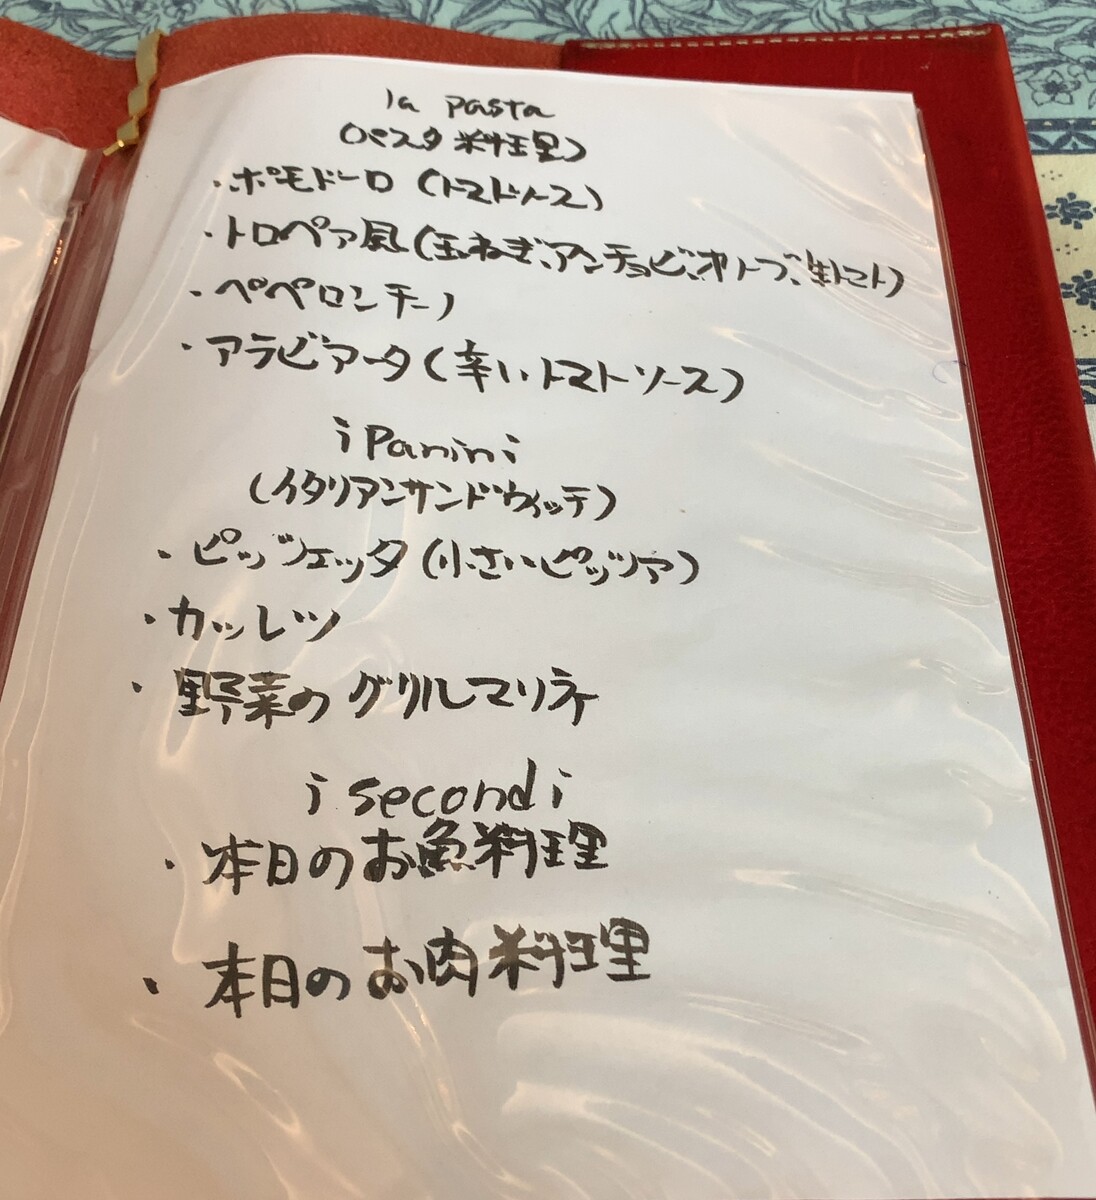 la pasta
(パスタ料理)
・ポモドーロ(トマトソース)
・トロペア風(玉ねぎ、アンチョビ、オリーブ、生トマト)
・ペペロンチーノ
・アラビアータ(辛いトマトソース)
i Panini
(イタリアンサンドウィッチ)
・ピッツェッタ(小さいピッツァ)
・カツレツ
・野菜のグリルマリネ
i secondi
・本日のお魚料理
・本日のお肉料理